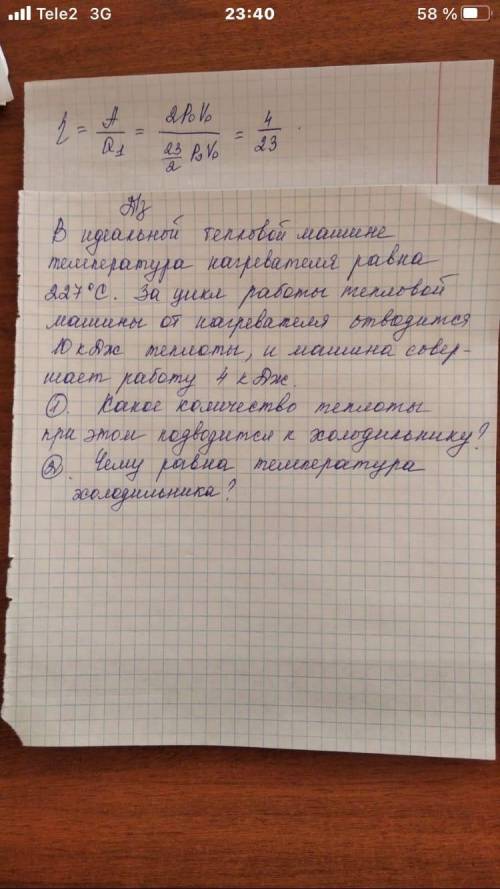 Tele2 3G 23:40 58 %
η = A/Q1 = 2P0V0 / (23/2 P0V0) = 4/23
Дз
В идеальной тепловой машине
температура нагревателя равна
227°С. За цикл работы тепловой
машины от нагревателя отводится
10 кДж теплоты, и машина совер-
шает работу 4 кДж.
1. Какое количество теплоты
при этом подводится к холодильнику?
2. Чему равна температура
холодильника?